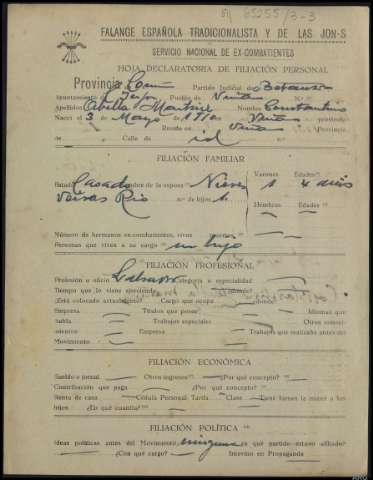 85255/3-3
FALANGE ESPAÑOLA TRADICIONALISTA Y DE LAS JON-S
SERVICIO NACIONAL DE EX-COMBATIENTES
HOJA DECLARATORIA DE FILIACIÓN PERSONAL
Provincia Partido Judicial de Betanzos
Ayuntamiento de Pueblo de N.º
Apellidos Abella Martínez Nombre Constantino
Nací el 3 de Mayo de 191 provincia
de Reside en Provincia
de Calle de id
FILIACIÓN FAMILIAR
Varones Edades
Estado Casado Nombre de la esposa Nieves 1 4 años
Veiras Rio N.º de hijos 1
Hembras Edades
Número de hermanos ex-combatientes, vivos
Personas que viven a su cargo un hijo
FILIACIÓN PROFESIONAL
Profesión u oficio Labrador Categoría o especialidad
Tiempo que lo viene ejerciendo
¿Está colocado actualmente? Cargo que ocupa
Empresa Títulos que posee Idiomas que
habla Trabajos especiales Otros conoci-
mientos Empresa Trabajos que realizaba antes del
Movimiento
FILIACIÓN ECONÓMICA
Sueldo o jornal Otros ingresos ¿Por qué concepto?
Contribución que paga ¿Por qué concepto?
Renta de casa Cédula Personal Tarifa Clase Tiene bienes la mujer o los
hijos ¿En qué cuantía?
FILIACIÓN POLÍTICA
Ideas políticas antes del Movimiento ninguna en qué partido estuvo afiliado?
¿Con qué cargo? Intervino en Propaganda